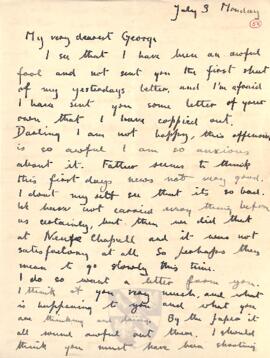 July 3 Monday
My very dearest George
I see that I have been an awful
fool and not sent you the first sheet
of my yesterdays letter, and I'm afraid
I have sent you some letter of your
own that I have coppied out.
Darling I am not happy, this offensive
is so awful I am so anxious
about it. Father seems to think
this first days news not very good.
I don't my self see that its so bad.
We have not carried every thing before
us certainly, but then we did that
at Neuve Chapell and it were not
satisfactory at all. So perhaps they
mean to go slowly this time.
I do so want a letter from you.
I think of you very much, and what
is happening to you and what you
are thinking and doing. By the papers it
all sounds awful out there, I should
think you must have been shooting